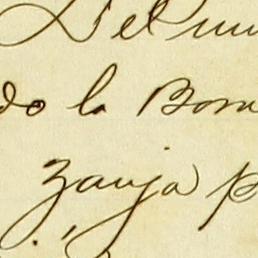 Del
do la Bom
zanja p